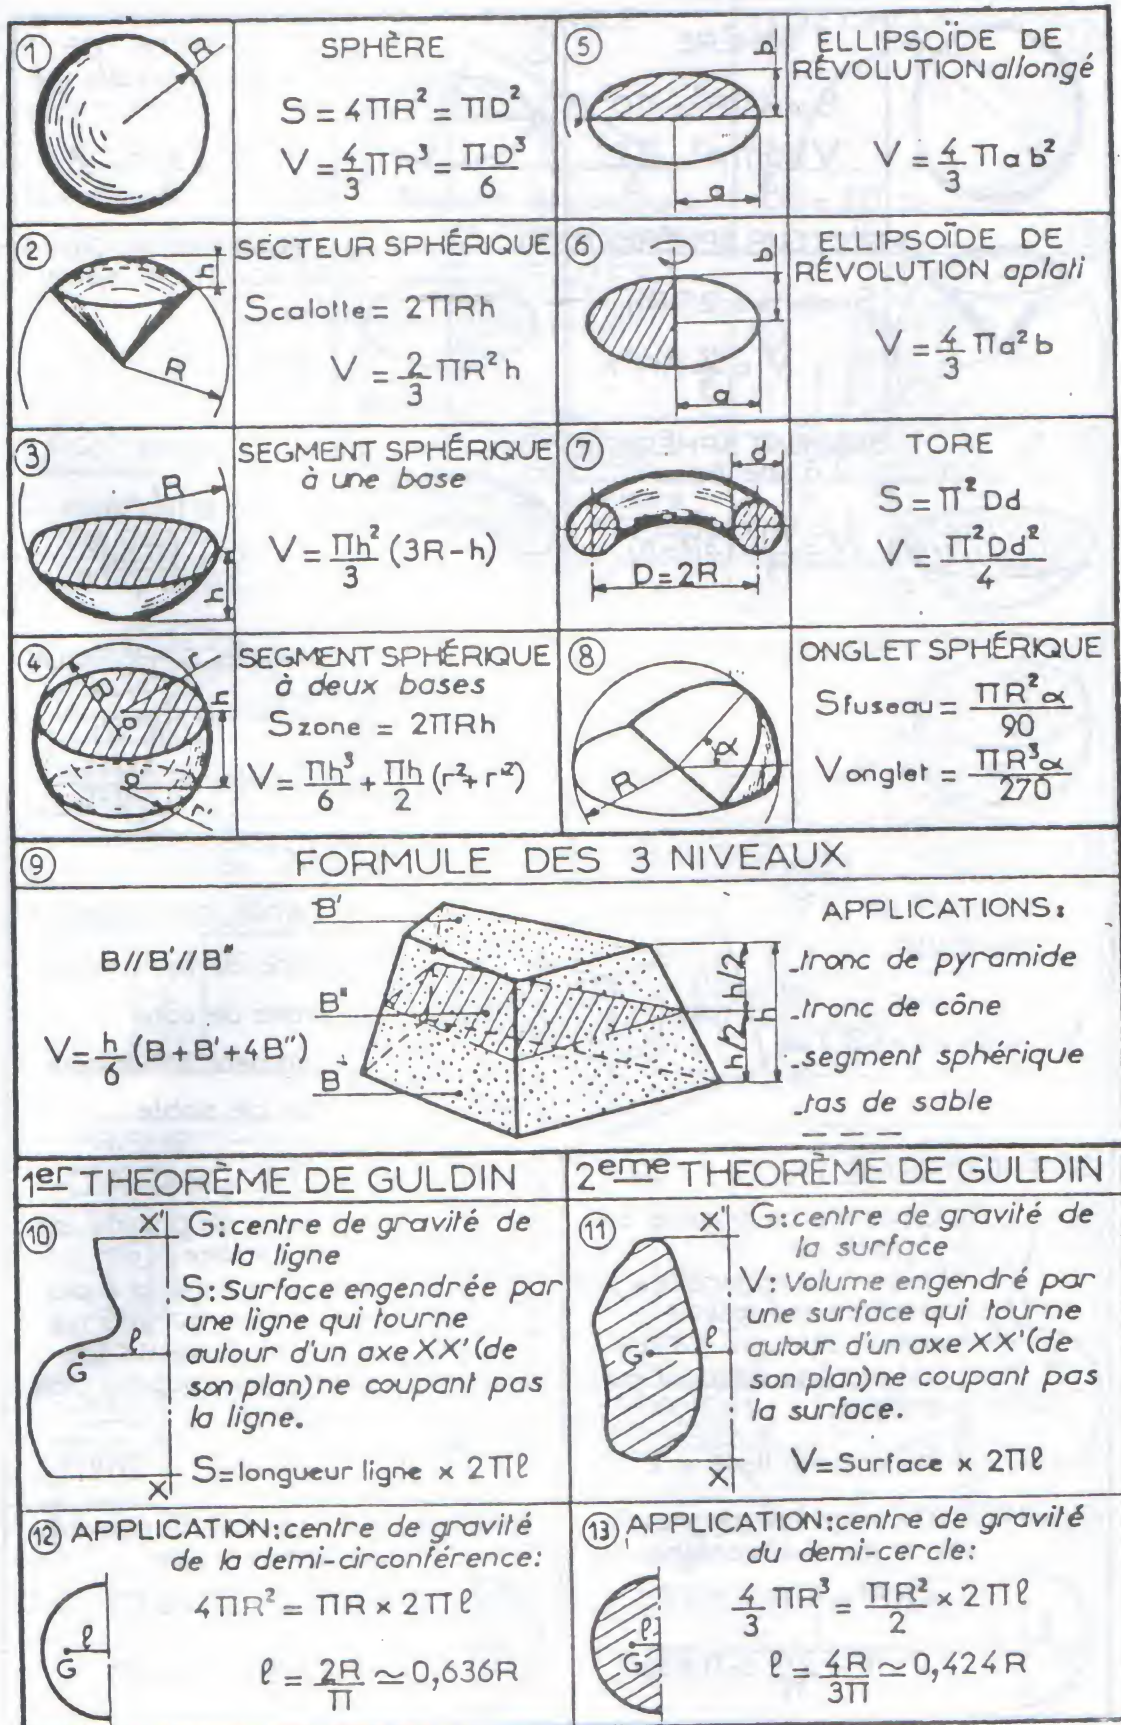 1
R
SPHÈRE
S = 4ΠR² = ΠD²
V = 4/3 ΠR³ = ΠD³/6
2
h
R
SECTEUR SPHÉRIQUE
Scalotte = 2ΠRh
V = 2/3 ΠR²h
3
R
h
SEGMENT SPHÉRIQUE
à une base
V = Πh²/3 (3R-h)
4
R
r
h
o
o'
r'
SEGMENT SPHÉRIQUE
à deux bases
Szone = 2ΠRh
V = Πh³/6 + Πh/2 (r²+r'²)
5
b
a
ELLIPSOÏDE DE
RÉVOLUTION allongé
V = 4/3 Πab²
6
b
a
ELLIPSOÏDE DE
RÉVOLUTION aplati
V = 4/3 Πa²b
7
d
D=2R
TORE
S = Π²Dd
V = Π²Dd²/4
8
R
α
ONGLET SPHÉRIQUE
Sfuseau = ΠR²α/90
Vonglet = ΠR³α/270
9
FORMULE DES 3 NIVEAUX
B//B'//B"
V = h/6 (B+B'+4B")
B'
B"
B
h/2
h/2
h
APPLICATIONS:
-tronc de pyramide
-tronc de cône
-segment sphérique
-tas de sable
1er THEORÈME DE GULDIN
10
X'
G
ℓ
X
G: centre de gravité de
la ligne
S: Surface engendrée par
une ligne qui tourne
autour d'un axe XX' (de
son plan) ne coupant pas
la ligne.
S=longueur ligne x 2Πℓ
2eme THEORÈME DE GULDIN
11
X'
G
ℓ
X
G: centre de gravité de
la surface
V: Volume engendré par
une surface qui tourne
autour d'un axe XX' (de
son plan) ne coupant pas
la surface.
V=Surface x 2Πℓ
12 APPLICATION: centre de gravité
de la demi-circonférence:
4ΠR² = ΠR x 2Πℓ
ℓ
G
ℓ = 2R/Π ≃ 0,636R
13 APPLICATION: centre de gravité
du demi-cercle:
4/3 ΠR³ = ΠR²/2 x 2Πℓ
ℓ
G
ℓ = 4R/3Π ≃ 0,424R